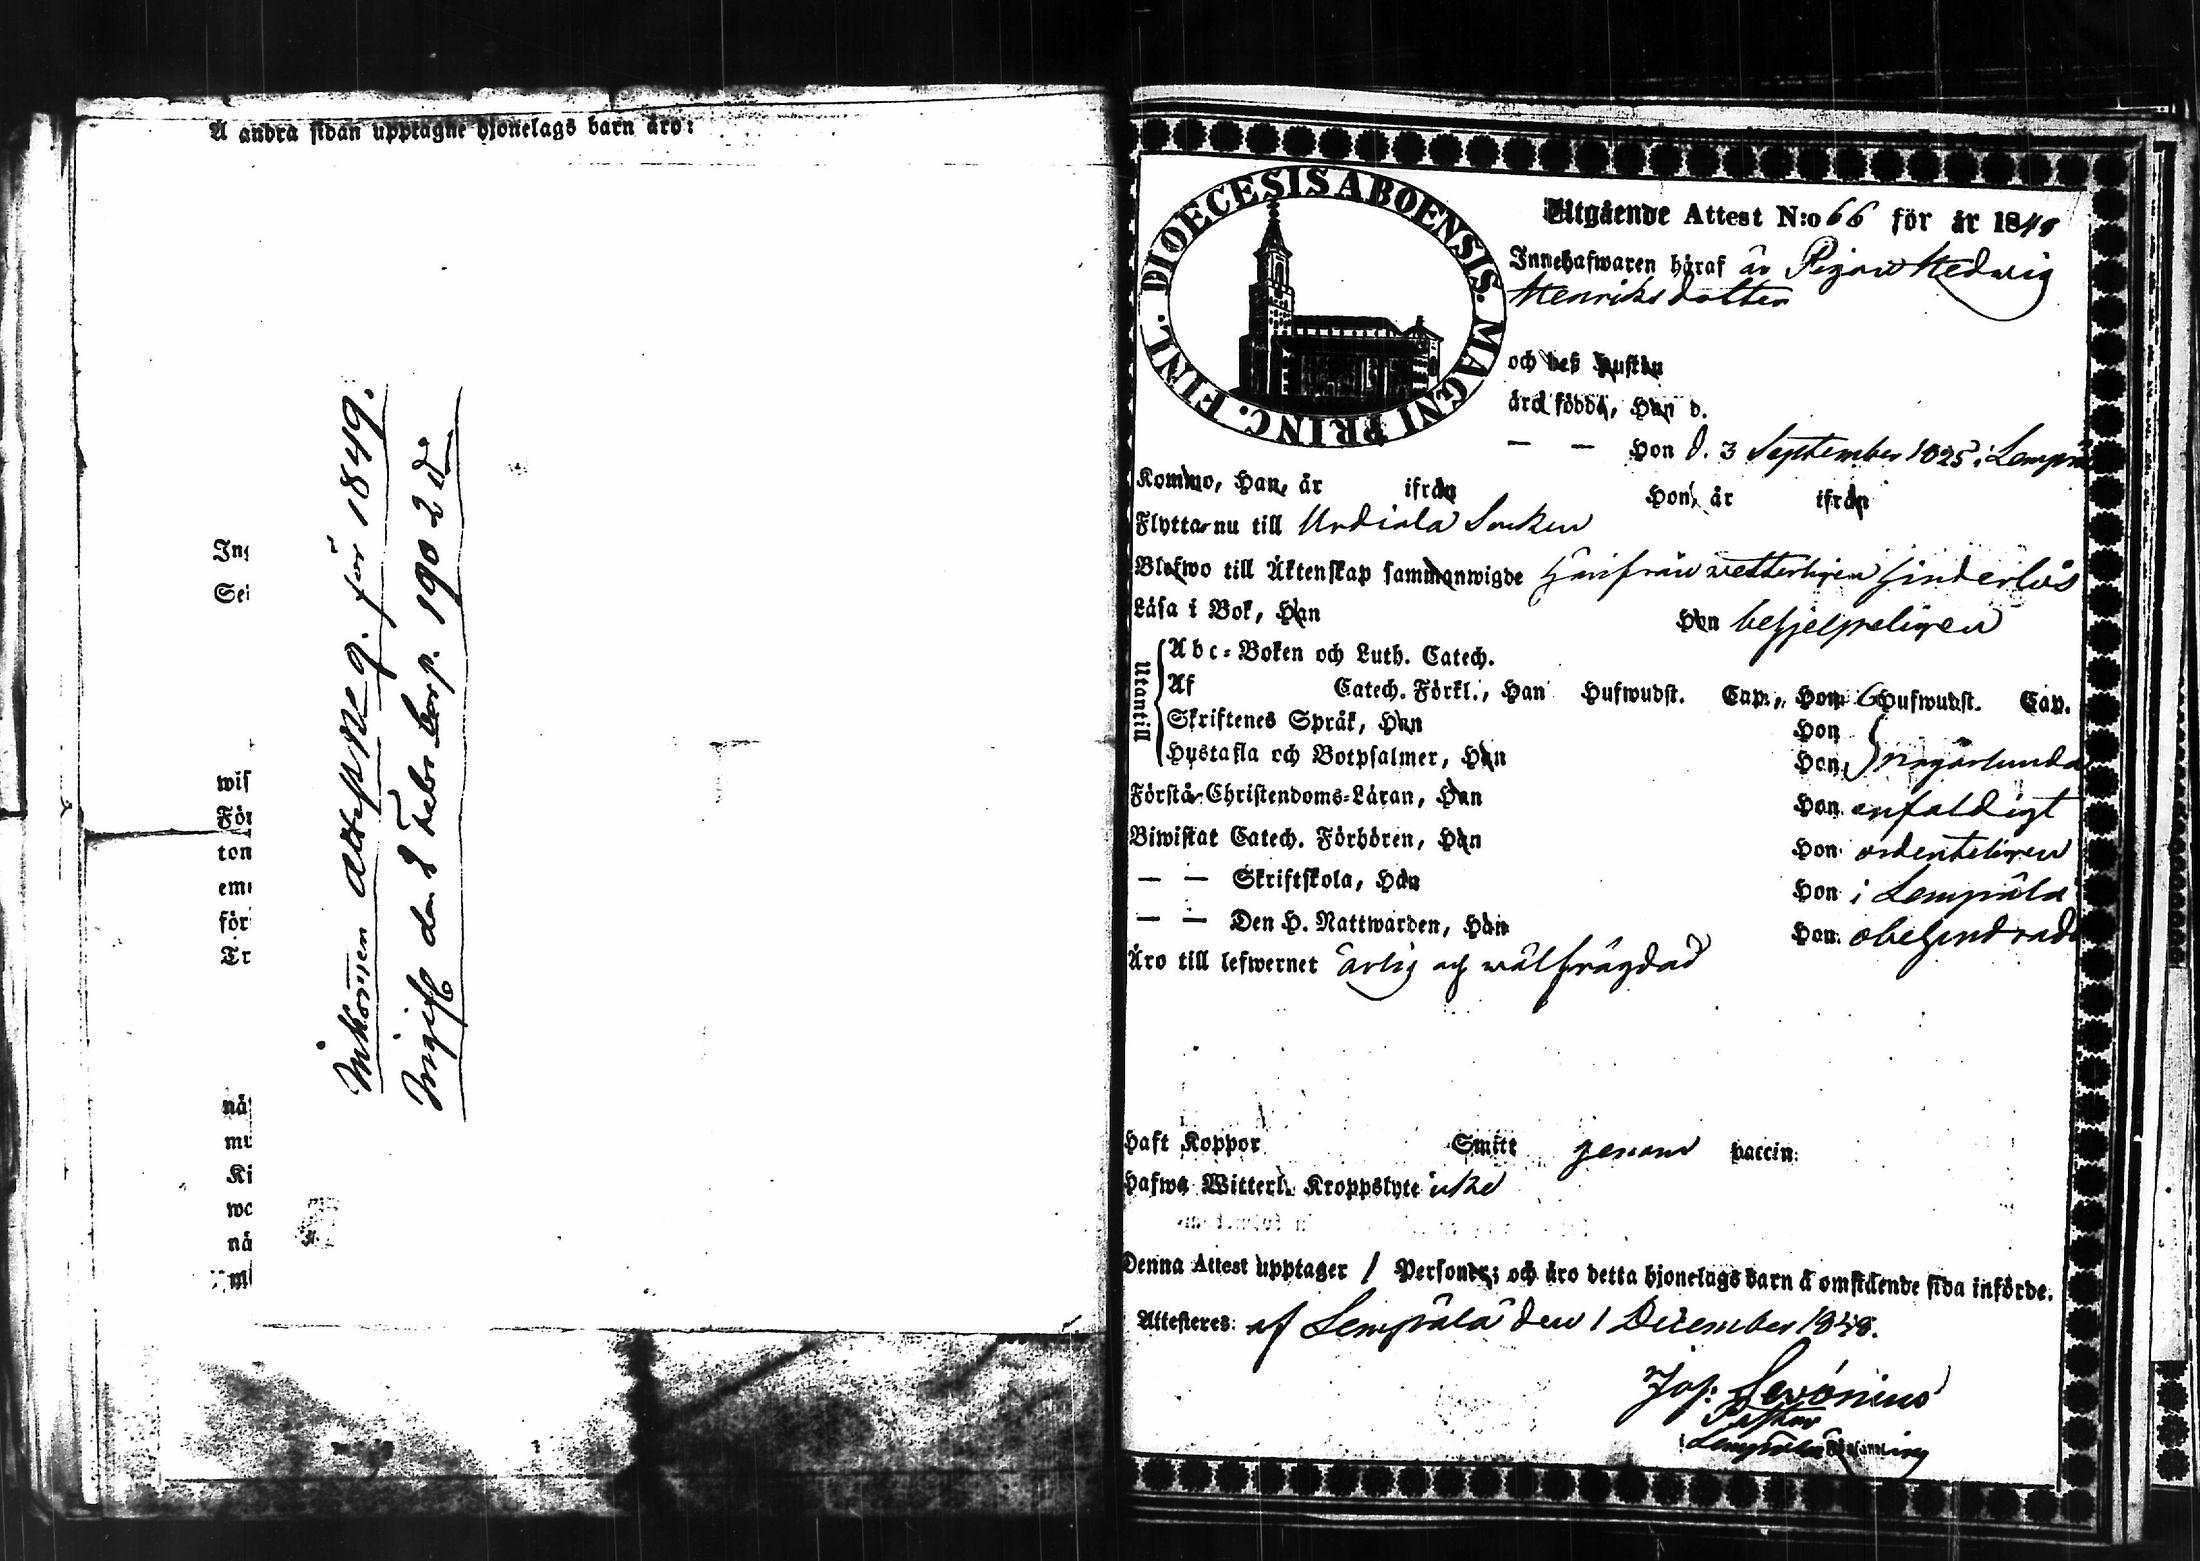 A andra sidan upptagne hjonelags barn äro:
Inkommen Attest No 9. för 1849.
Ingift den 2 Febr. bor p. 190 2 d
Ing
Sei
wis
För
ton
em
för
Tr
nä
mu
Ki
wo
nä
ml
DIOECESIS ABOENSIS. MAGNI PRINC. FINL.
Utgående Attest N:o 66 för år 1848
Innehafwaren häraf är Pigan Hedwig
Henriksdotter
och dess hustru
äro födda, Han d.
— — Hon d. 3 September 1825 i Lempälä
Kommo, Han, år ifrån Hon, år ifrån
Flytta nu till Urdiala Socken
Blefwo till Äktenskap sammanwigde härifrån wetterligen hinderlös
Läsa i Bok, Han Hon behjelpeligen
Utantill
Abc-Boken och Luth. Catech.
Af Catech. Förkl., Han Hufwudst. Cap., Hon 6 Hufwudst. Cap.
Skriftenes Språk, Han Hon
Hustafla och Botpsalmer, Han Hon någorlunda
Förstå Christendoms-Läran, Han Hon enfaldigt
Biwistat Catech. Förhören, Han Hon ordenteligen
— — Skriftskola, Han Hon i Lempälä
— — Den H. Nattwarden, Han Hon obehindrad
Äro till lefwernet ärlig och wälfrägdad
Haft Koppor Smitt genom vaccin:
Hafwa Witterl. Kroppslyte icke
Denna Attest upptager 1 Personer; och äro detta hjonelags barn å omstående sida införde.
Attesteres: af Lempälä den 1 December 1848.
Jos: Serónius
Pastor
i Lempälä